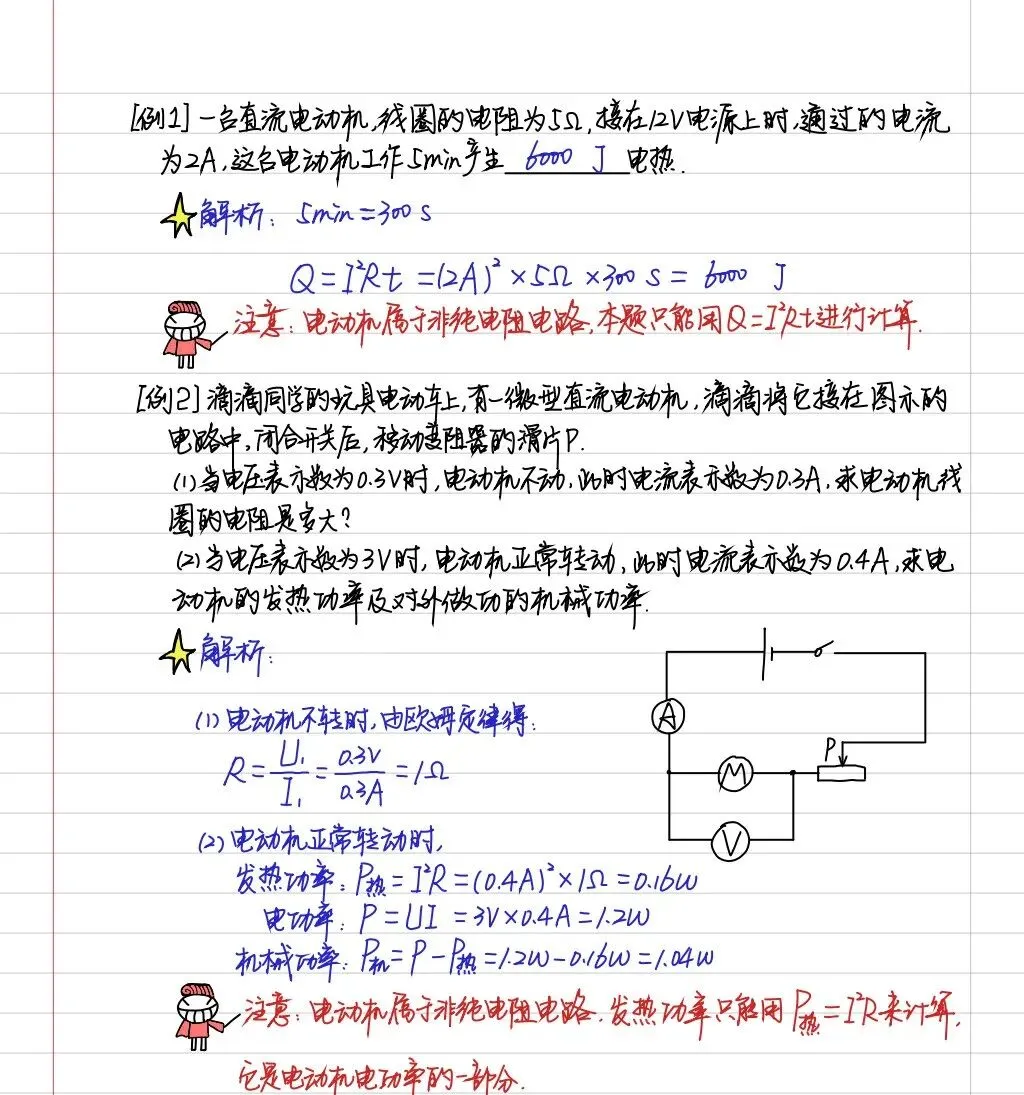 [例1]一台直流电动机,线圈的电阻为5Ω,接在12V电源上时,通过的电流
为2A,这台电动机工作5min产生 6000 J 电热.
解析: 5min=300s
Q=I²Rt=(2A)²×5Ω×300s=6000 J
注意:电动机属于非纯电阻电路,本题只能用Q=I²Rt进行计算.
[例2]滴滴同学的玩具电动车上,有一微型直流电动机,滴滴将它接在图示的
电路中,闭合开关后,移动变阻器的滑片P.
(1)当电压表示数为0.3V时,电动机不动,此时电流表示数为0.3A,求电动机线
圈的电阻是多大?
(2)当电压表示数为3V时,电动机正常转动,此时电流表示数为0.4A,求电
动机的发热功率及对外做功的机械功率.
解析:
(1)电动机不转时,由欧姆定律得:
R=U₁/I₁=0.3V/0.3A=1Ω
(2)电动机正常转动时,
发热功率:P热=I²R=(0.4A)²×1Ω=0.16W
电功率:P=UI=3V×0.4A=1.2W
机械功率:P机=P-P热=1.2W-0.16W=1.04W
A
P
M
V
注意:电动机属于非纯电阻电路.发热功率只能用P热=I²R来计算,
它是电动机电功率的一部分.